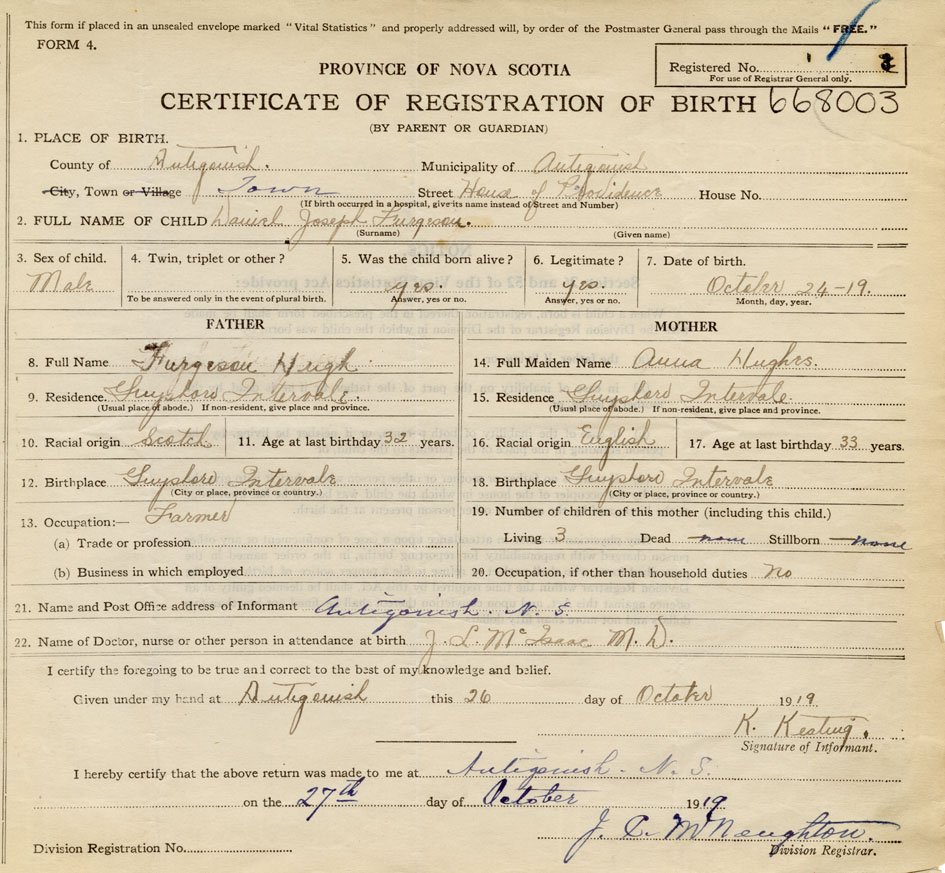 This form if placed in an unsealed envelope marked "Vital Statistics" and properly addressed will, by order of the Postmaster General pass through the Mails "FREE."
FORM 4.
Registered No.
For use of Registrar General only.
PROVINCE OF NOVA SCOTIA
CERTIFICATE OF REGISTRATION OF BIRTH 668003
(BY PARENT OR GUARDIAN)
1. PLACE OF BIRTH.
County of Antigonish. Municipality of Antigonish
City, Town or Village Town Street House of Providence House No.
(If birth occurred in a hospital, give its name instead of Street and Number)
2. FULL NAME OF CHILD Daniel Joseph Furgeson.
(Surname) (Given name)
3. Sex of child. 4. Twin, triplet or other? 5. Was the child born alive? 6. Legitimate? 7. Date of birth.
Male yes. yes. October 24-19.
To be answered only in the event of plural birth. Answer, yes or no. Answer, yes or no. Month, day, year.
FATHER MOTHER
8. Full Name Furgeson Hugh 14. Full Maiden Name Anna Hughes.
9. Residence. Guysboro Intervale. 15. Residence Guysboro Intervale.
(Usual place of abode.) If non-resident, give place and province. (Usual place of abode.) If non-resident, give place and province.
10. Racial origin Scotch 11. Age at last birthday 32 years. 16. Racial origin English 17. Age at last birthday 33 years.
12. Birthplace Guysboro Intervale 18. Birthplace Guysboro Intervale
(City or place, province or country.) (City or place, province or country.)
13. Occupation:— Farmer 19. Number of children of this mother (including this child.)
(a) Trade or profession Living 3 Dead none Stillborn none
(b) Business in which employed 20. Occupation, if other than household duties no
21. Name and Post Office address of Informant Antigonish. N. S.
22. Name of Doctor, nurse or other person in attendance at birth J. L. McIsaac M. D.
I certify the foregoing to be true and correct to the best of my knowledge and belief.
Given under my hand at Antigonish this 26 day of October 1919
K. Keating.
Signature of Informant.
I hereby certify that the above return was made to me at Antigonish. N. S.
on the 27th day of October 1919
J. C. McNaughton.
Division Registration No. Division Registrar.